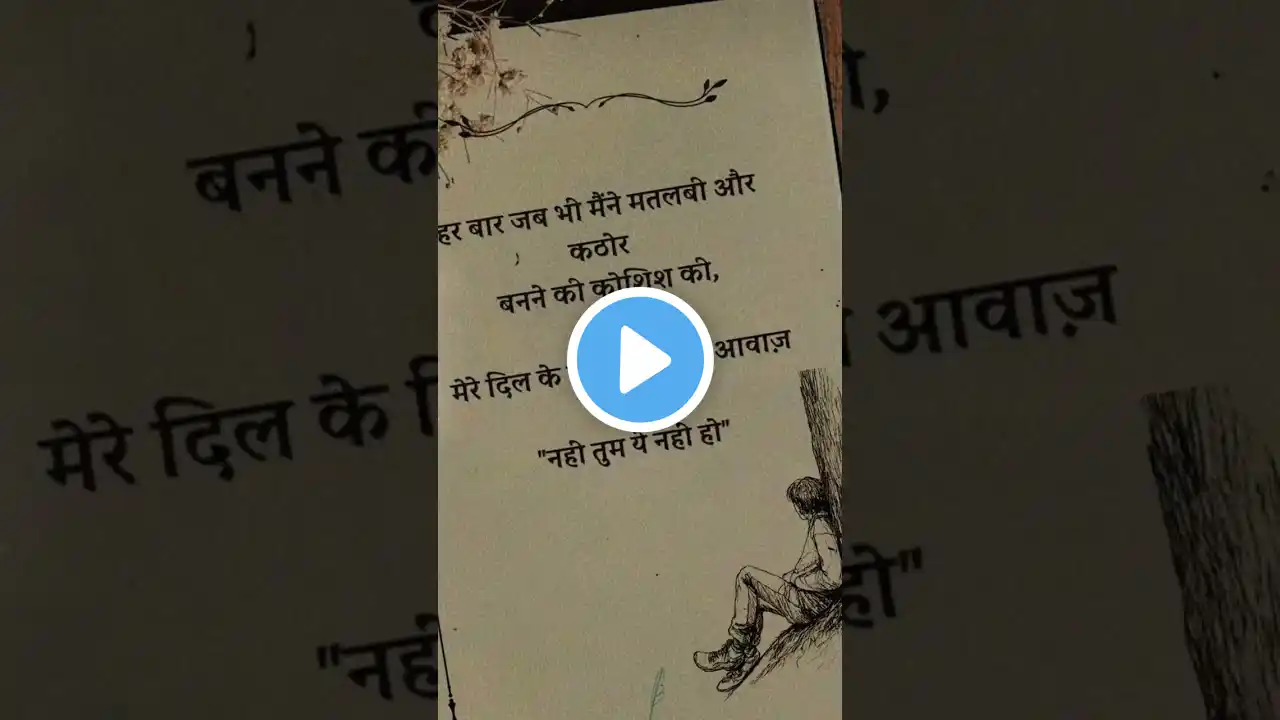 हर बार जब भी मैंने मतलबी और
कठोर
बनने की कोशिश की,
मेरे दिल के आवाज़
"नही तुम ये नही हो"